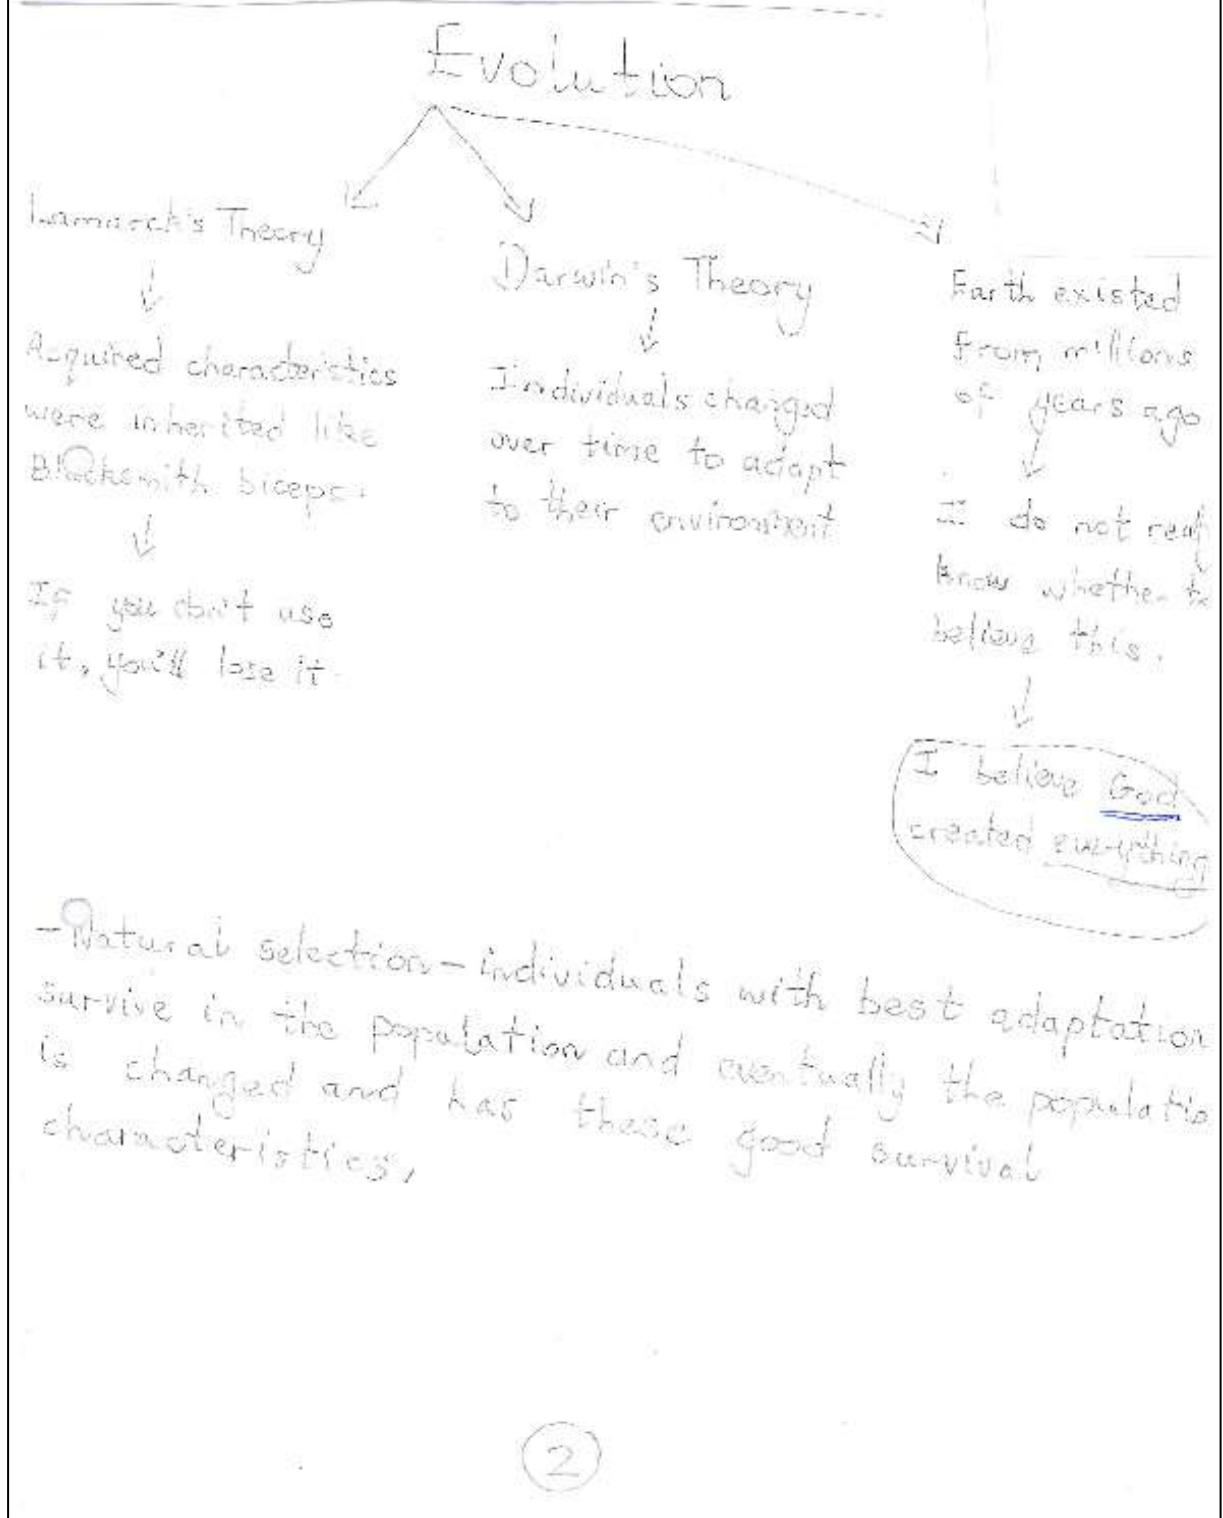 Evolution
Lamarck's Theory
Acquired characteristics
were inherited like
Blacksmith biceps.
If you don't use
it, you'll lose it.
Darwin's Theory
Individuals changed
over time to adapt
to their environment
Earth existed
from millions
of years ago
I do not really
know whether to
believe this.
I believe God
created everything
- Natural selection - individuals with best adaptation
survive in the population and eventually the populatio
is changed and has these good survival
characteristics,
2